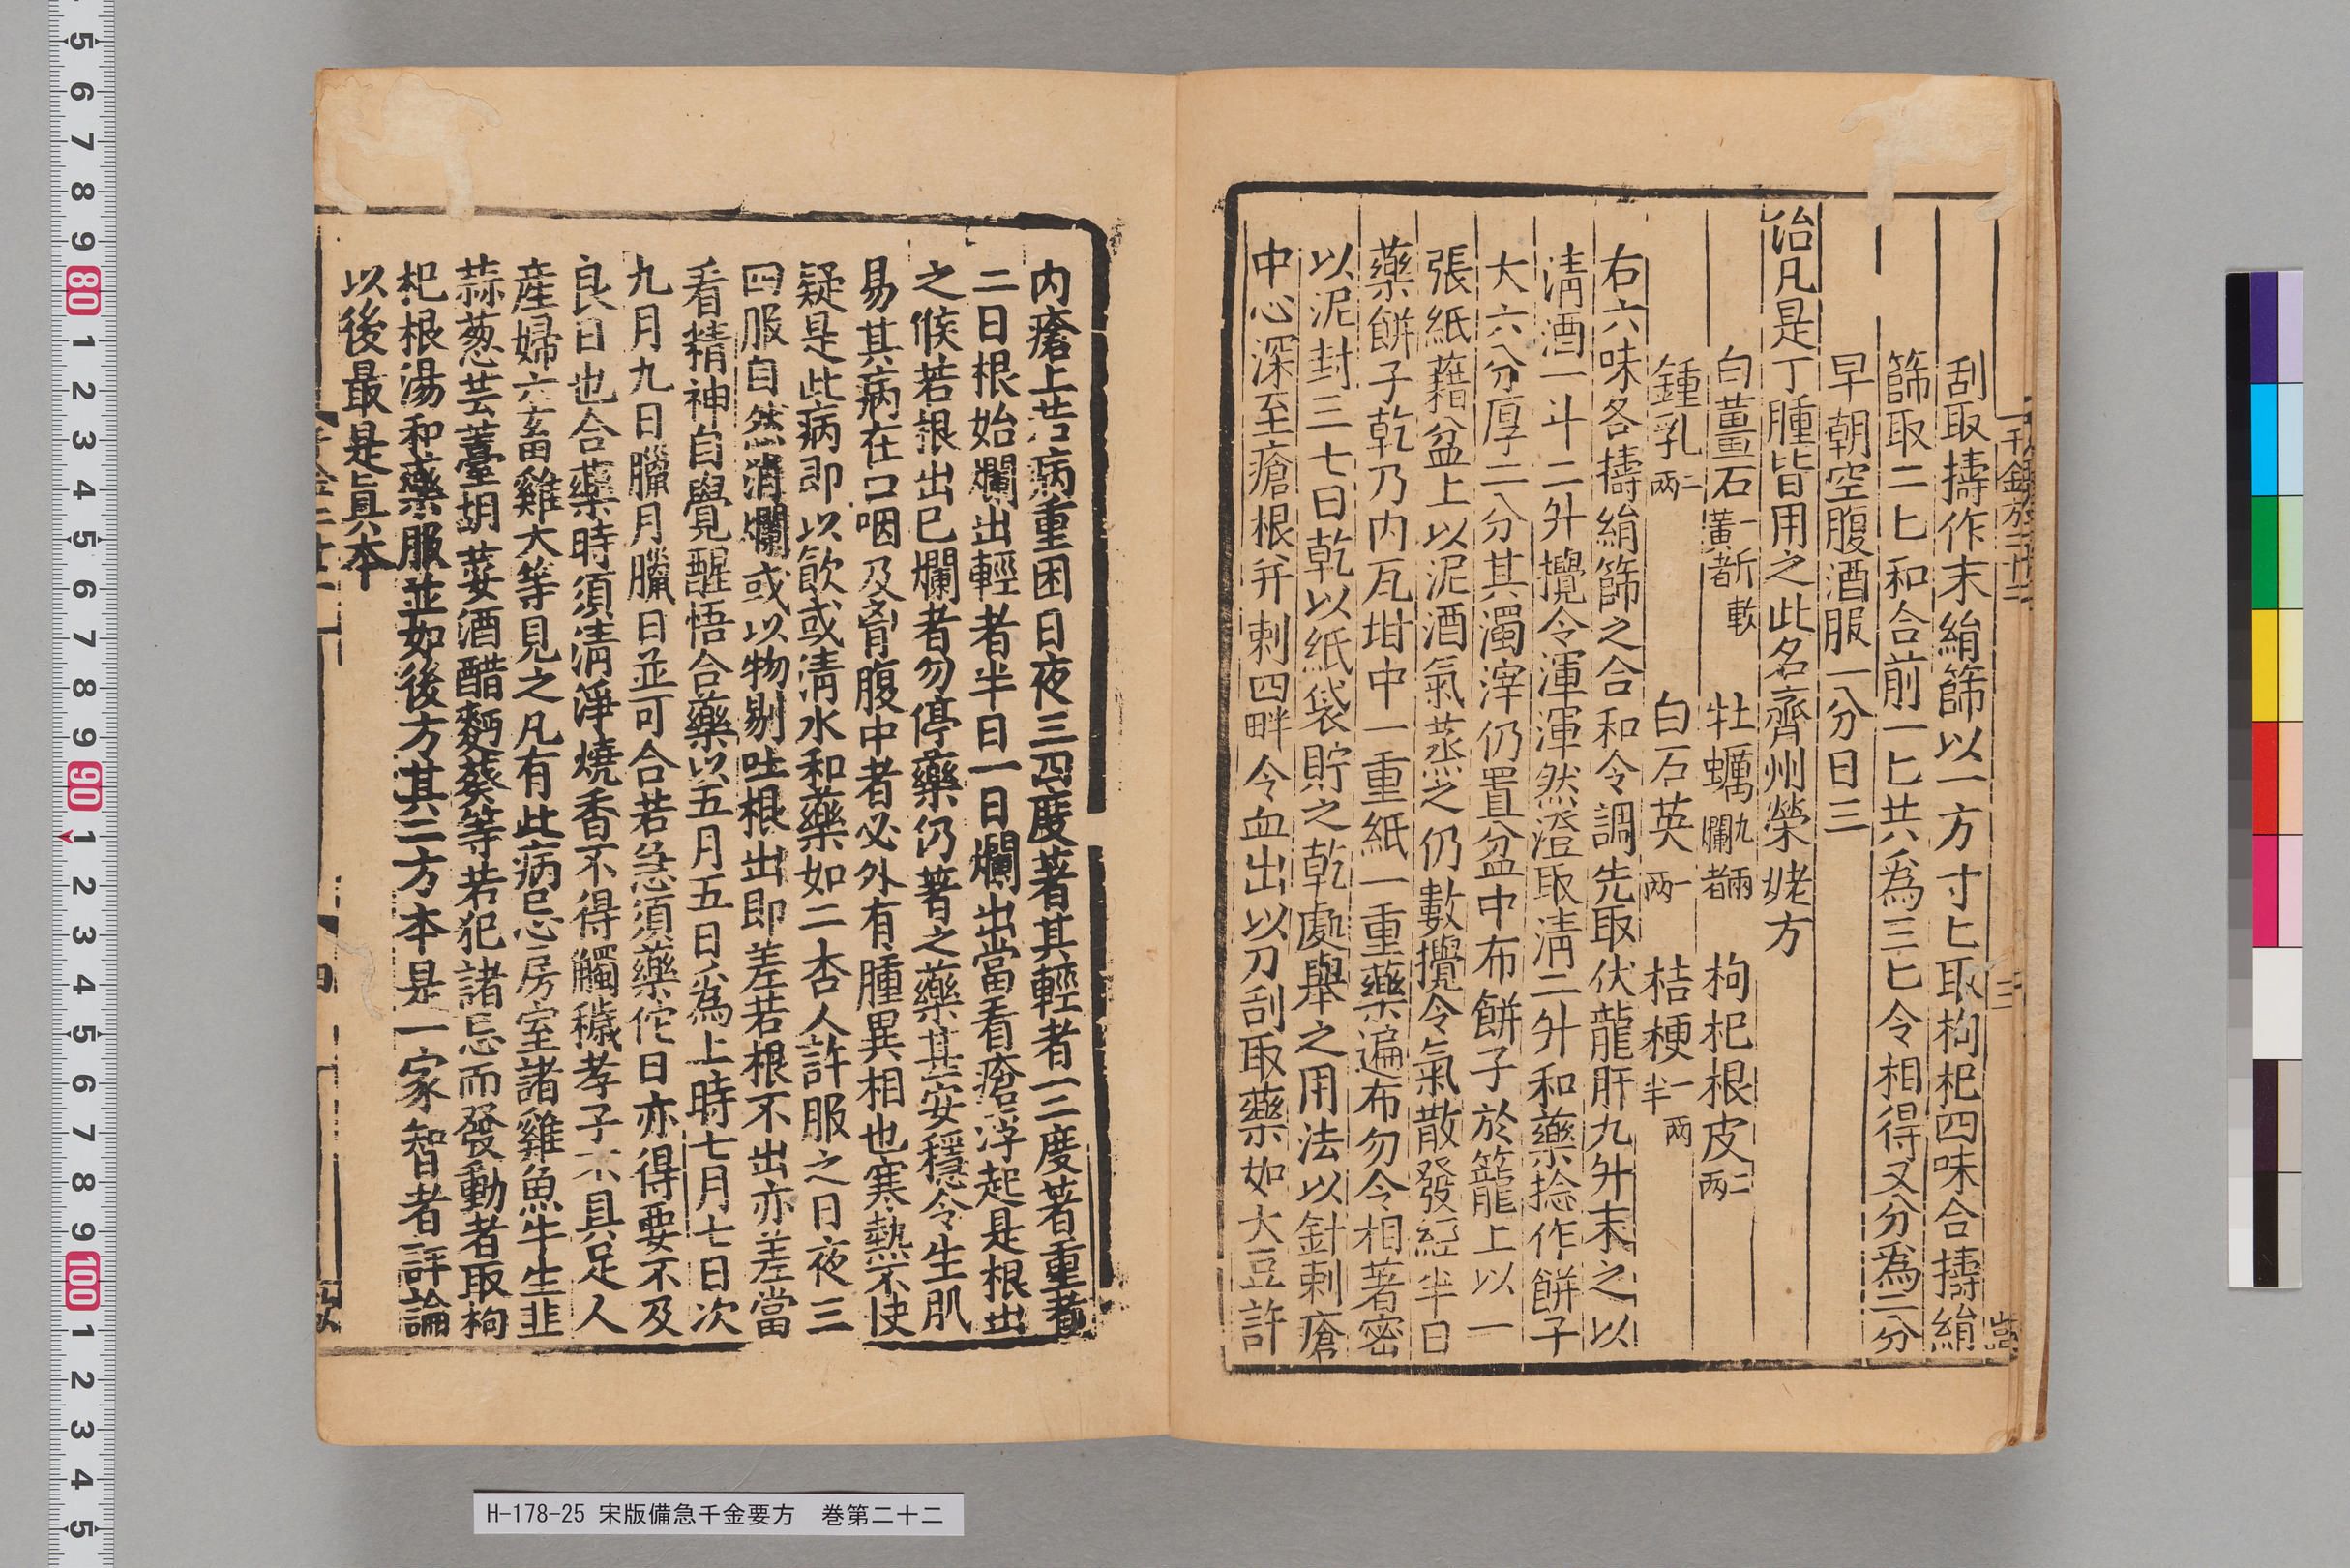 刮取擣作末絹篩以一方寸匕取枸杞四味合擣絹
篩取二匕和合前一匕共爲三匕令相得又分爲二分
早朝空腹酒服一分日三
治凡是丁腫皆用之此名齊州榮姥方
白薑石一斤黃者軟 牡蠣九兩爛者 枸杞根皮二兩
鍾乳二兩 白石英一兩 桔梗一兩半
右六味各擣絹篩之合和令調先取伏龍肝九升末之以
清酒一斗二升攪令渾渾然澄取清二升和藥捻作餅子
大六分厚二分其濁滓仍置盆中布餅子於籠上以一
張紙藉盆上以泥酒氣蒸之仍數攪令氣散發經半日
藥餅子乾乃内瓦坩中一重紙一重藥遍布勿令相著密
以泥封三七日乾以紙袋貯之乾處舉之用法以針刺瘡
中心深至瘡根并刺四畔令血出以刀刮取藥如大豆許
内瘡上若病重困日夜三四度著其輕者一二度著重者
二日根始爛出輕者半日一日爛出當看瘡浮起是根出
之候若根出已爛者勿停藥仍著之藥甚安穩令生肌
易其病在口咽及胷腹中者必外有腫異相也寒熱不快
疑是此病即以飲或清水和藥如二杏人許服之日夜三
四服自然消爛或以物剔吐根出即差若根不出亦差當
看精神自覺醒悟合藥以五月五日爲上時七月七日次
九月九日臘月臘日並可合若急須藥佗日亦得要不及
良日也合藥時須清淨燒香不得觸穢孝子不具足人
産婦六畜雞犬等見之凡有此病忌房室諸雞魚牛生韭
蒜葱芸薹胡荽酒醋麪葵等若犯諸忌而發動者取枸
杞根湯和藥服並如後方其二方本是一家智者評論
以後最是真本
H-178-25 宋版備急千金要方 巻第二十二